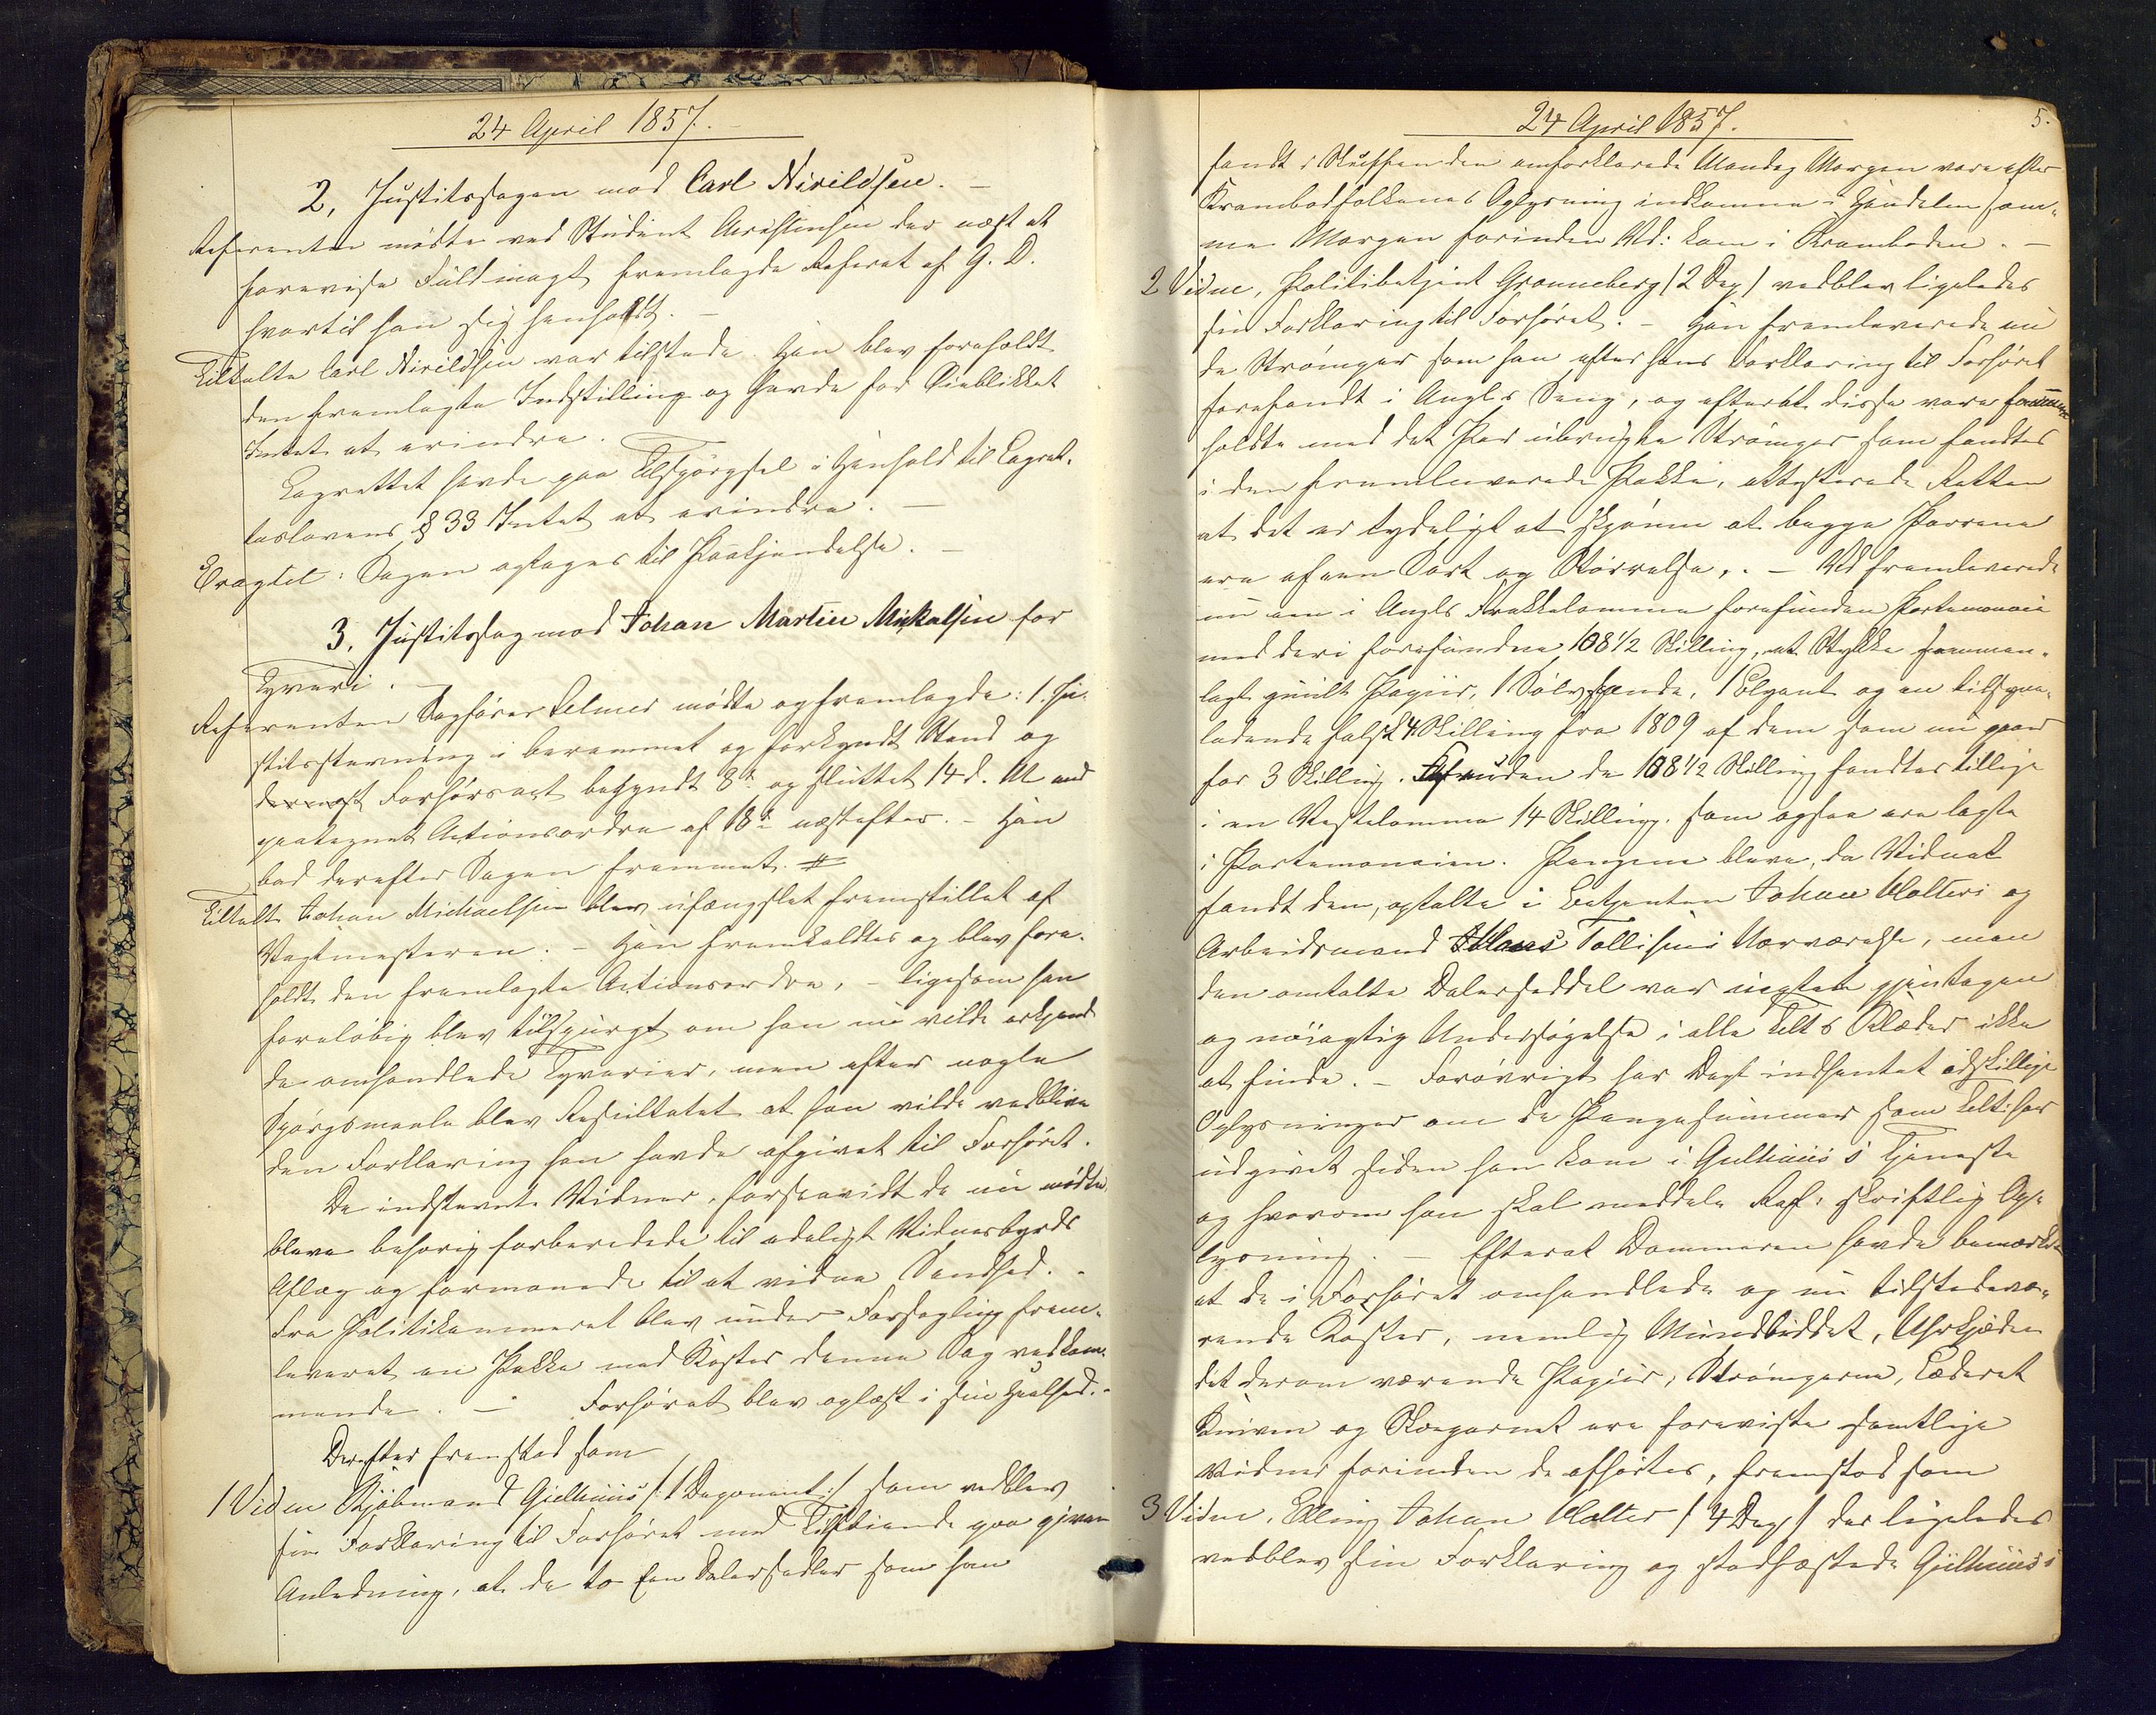 24 April 1857.
2, Justitssagen mod Carl Nirildsen. –
Referenten mødte ved Student Christensen der næst at
forevise Fuldmagt fremlagde Referat af G. D.
hvortil han sig henholdt. –
Tiltalte Carl Nirildsen var tilstede. Han blev foreholdt
den fremlagte Indstilling og havde for Øieblikket
Intet at erindre.
Lagrettet havde paa Tilspørgsel i Henhold til Lagret-
teslovens § 33 Intet at erindre. –
Eragtet: Sagen optages til Paakjendelse. –
3. Justitssag mod Johan Martin Mikalsen for
Tyveri. –
Referenten Sagfører Selmer mødte og fremlagde: 1. Ju-
stitsstevning i berammet og forkyndt Stand og
dernæst Forhørsact begyndt 8de og sluttet 14 d. M med
paategnet Actionsordre af 18de næstefter. – Han
bad derefter Sagen fremmet. #
Tiltalte Johan Michaelsen blev ufængslet fremstillet af
Vagtmesteren. – Han fremkaldtes og blev fore-
holdt den fremlagte Actionsordre, – ligesom han
foreløbig blev tilspurgt om han nu vilde erkjende
de omhandlede Tyverier, men efter nogle
Spørgsmaale blev Resultatet at han vilde vedblive
den Forklaring han havde afgivet til Forhøret.
De indstevnte Vidner, forsaavidt de nu mødte,
bleve behørig forberedede til edeligt Vidnesbyrds
Aflæg og formanede til at vidne Sandhed. –
Fra Politikammeret blev under Forsegling frem-
leveret en Pakke med Koster denne Sag vedkom-
mende. – Forhøret blev oplæst i sin Heelhed. –
Derefter fremstod som
1 Vidne Kjøbmand Gjelhuus /: 1 Deponent :/ som vedblev
sin Forklaring til Forhøret med Tilføiende paa given
Anledning, at de to Een Dalersedler som han
24 April 1857. 5.
fandt i Skuffen den omforklarede Mandag Morgen vare efter
Krambodfolkenes Oplysning indkomne i Handelen sam-
me Morgen forinden Vd: kom i Kramboden. –
2 Vidne, Politibetjent Gronneberg / 2 Dep / vedblev ligeledes
sin Forklaring til Forhøret. – Han fremleverede nu
de Strømper som han efter hans Forklaring til Forhøret
forefandt i Angls Seng, og efterat disse vare sammen-
holdte med det Par ubrugte Strømper som fandtes
i den fremleverede Pakke, attesterede Retten
at det er tydeligt at skjønne at begge Parrene
ere af een Sort og Størrelse,. – Vd fremleverede
nu en i Angls Frakkelomme forefunden Portemonaie
med deri forefundne 108 1/2 Skilling, et Stykke sammen-
lagt guult Papiir, 1 Sølvskænde, 1 og en tilsyne-
ladende falsk 4 Skilling fra 1809 af dem som nu gaar
for 3 Skilling. Foruden de 108 1/2 Skilling fandtes tillige
i en Vestelomme 14 Skilling. som ogsaa ere lagte
i Portemonaien. Pengene bleve, da Vidnet
fandt dem, optalte i Betjenten Johan Wolters og
Arbeidsmand Hans Tollisens Nærværelse, men
den omtalte Dalerseddel var uagtet gjentagen
og nøiagtig Undersøgelse i alle Tilt s Klæder ikke
at finde. – Forøvrigt har Dept indhentet adskillige
Oplysninger om de Pengesummer som Tilt: har
udgivet siden han kom i Gjelhuus's Tjeneste
og hvorom han skal meddele Ref: skriftlig Op-
lysning. – Efterat Dommeren havde bemærket
at de i Forhøret omhandlede og nu tilstedevæ-
rende Koster, nemlig Mundbiddet, Uhrkjæden
det derom værende Papiir, Strømperne, Læderet
Kniven og Skogarnet ere foreviste samtlige
Vidner forinden de afhørtes, fremstod som
3 Vidne, Elling Johan Wolter / 4 Dep / der ligeledes
vedblev sin Forklaring og stadfæstede Gjelhuus's